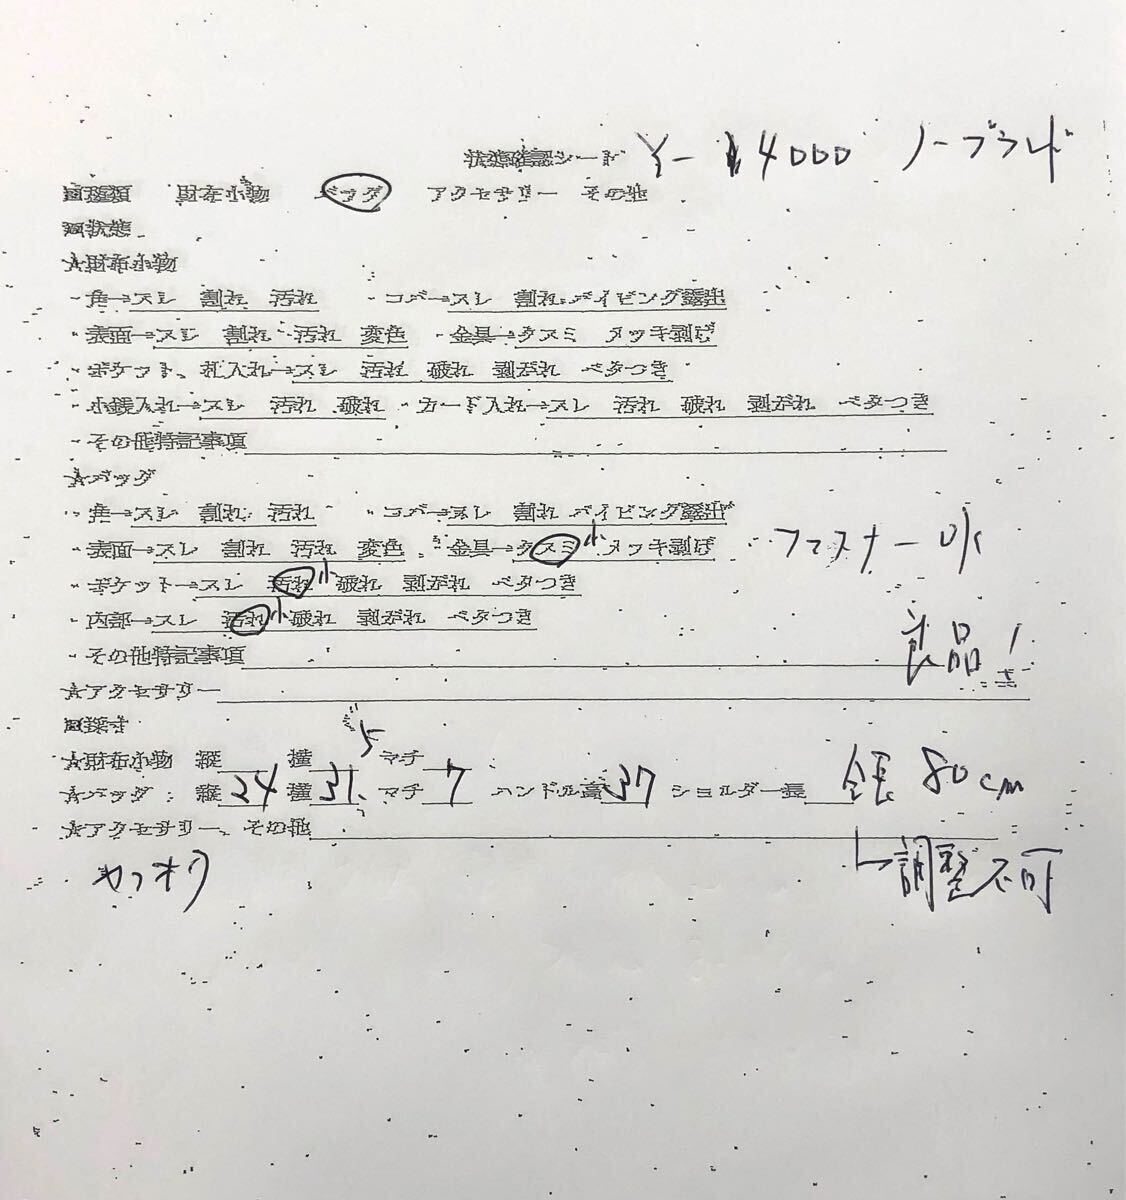 状態確認シート Y- 4000 ノーブランド
□種類 財布小物 バッグ アクセサリー その他
□状態
☆財布小物
・角→スレ 割れ 汚れ ・コバ→スレ 割れ パイピング露出
・表面→スレ 割れ 汚れ 変色 ・金具→クスミ メッキ剥げ
・ポケット、札入れ→スレ 汚れ 破れ 剥がれ ベタつき
・小銭入れ→スレ 汚れ 破れ ・カード入れ→スレ 汚れ 破れ 剥がれ ベタつき
・その他特記事項
☆バッグ
・角→スレ 割れ 汚れ ・コバ→スレ 割れ パイピング露出
・表面→スレ 割れ 汚れ 変色 ・金具→クスミ小 メッキ剥げ ファスナーOK
・ポケット→スレ 汚れ小 破れ 剥がれ ベタつき
・内部→スレ 汚れ小 破れ 剥がれ ベタつき
・その他特記事項 良品!
☆アクセサリー
□採寸
☆財布小物 縦 横 マチ
☆バッグ 縦24 横31.5 マチ7 ハンドル高37 ショルダー長 全長80cm
☆アクセサリー、その他
ヤフオク └調整不可